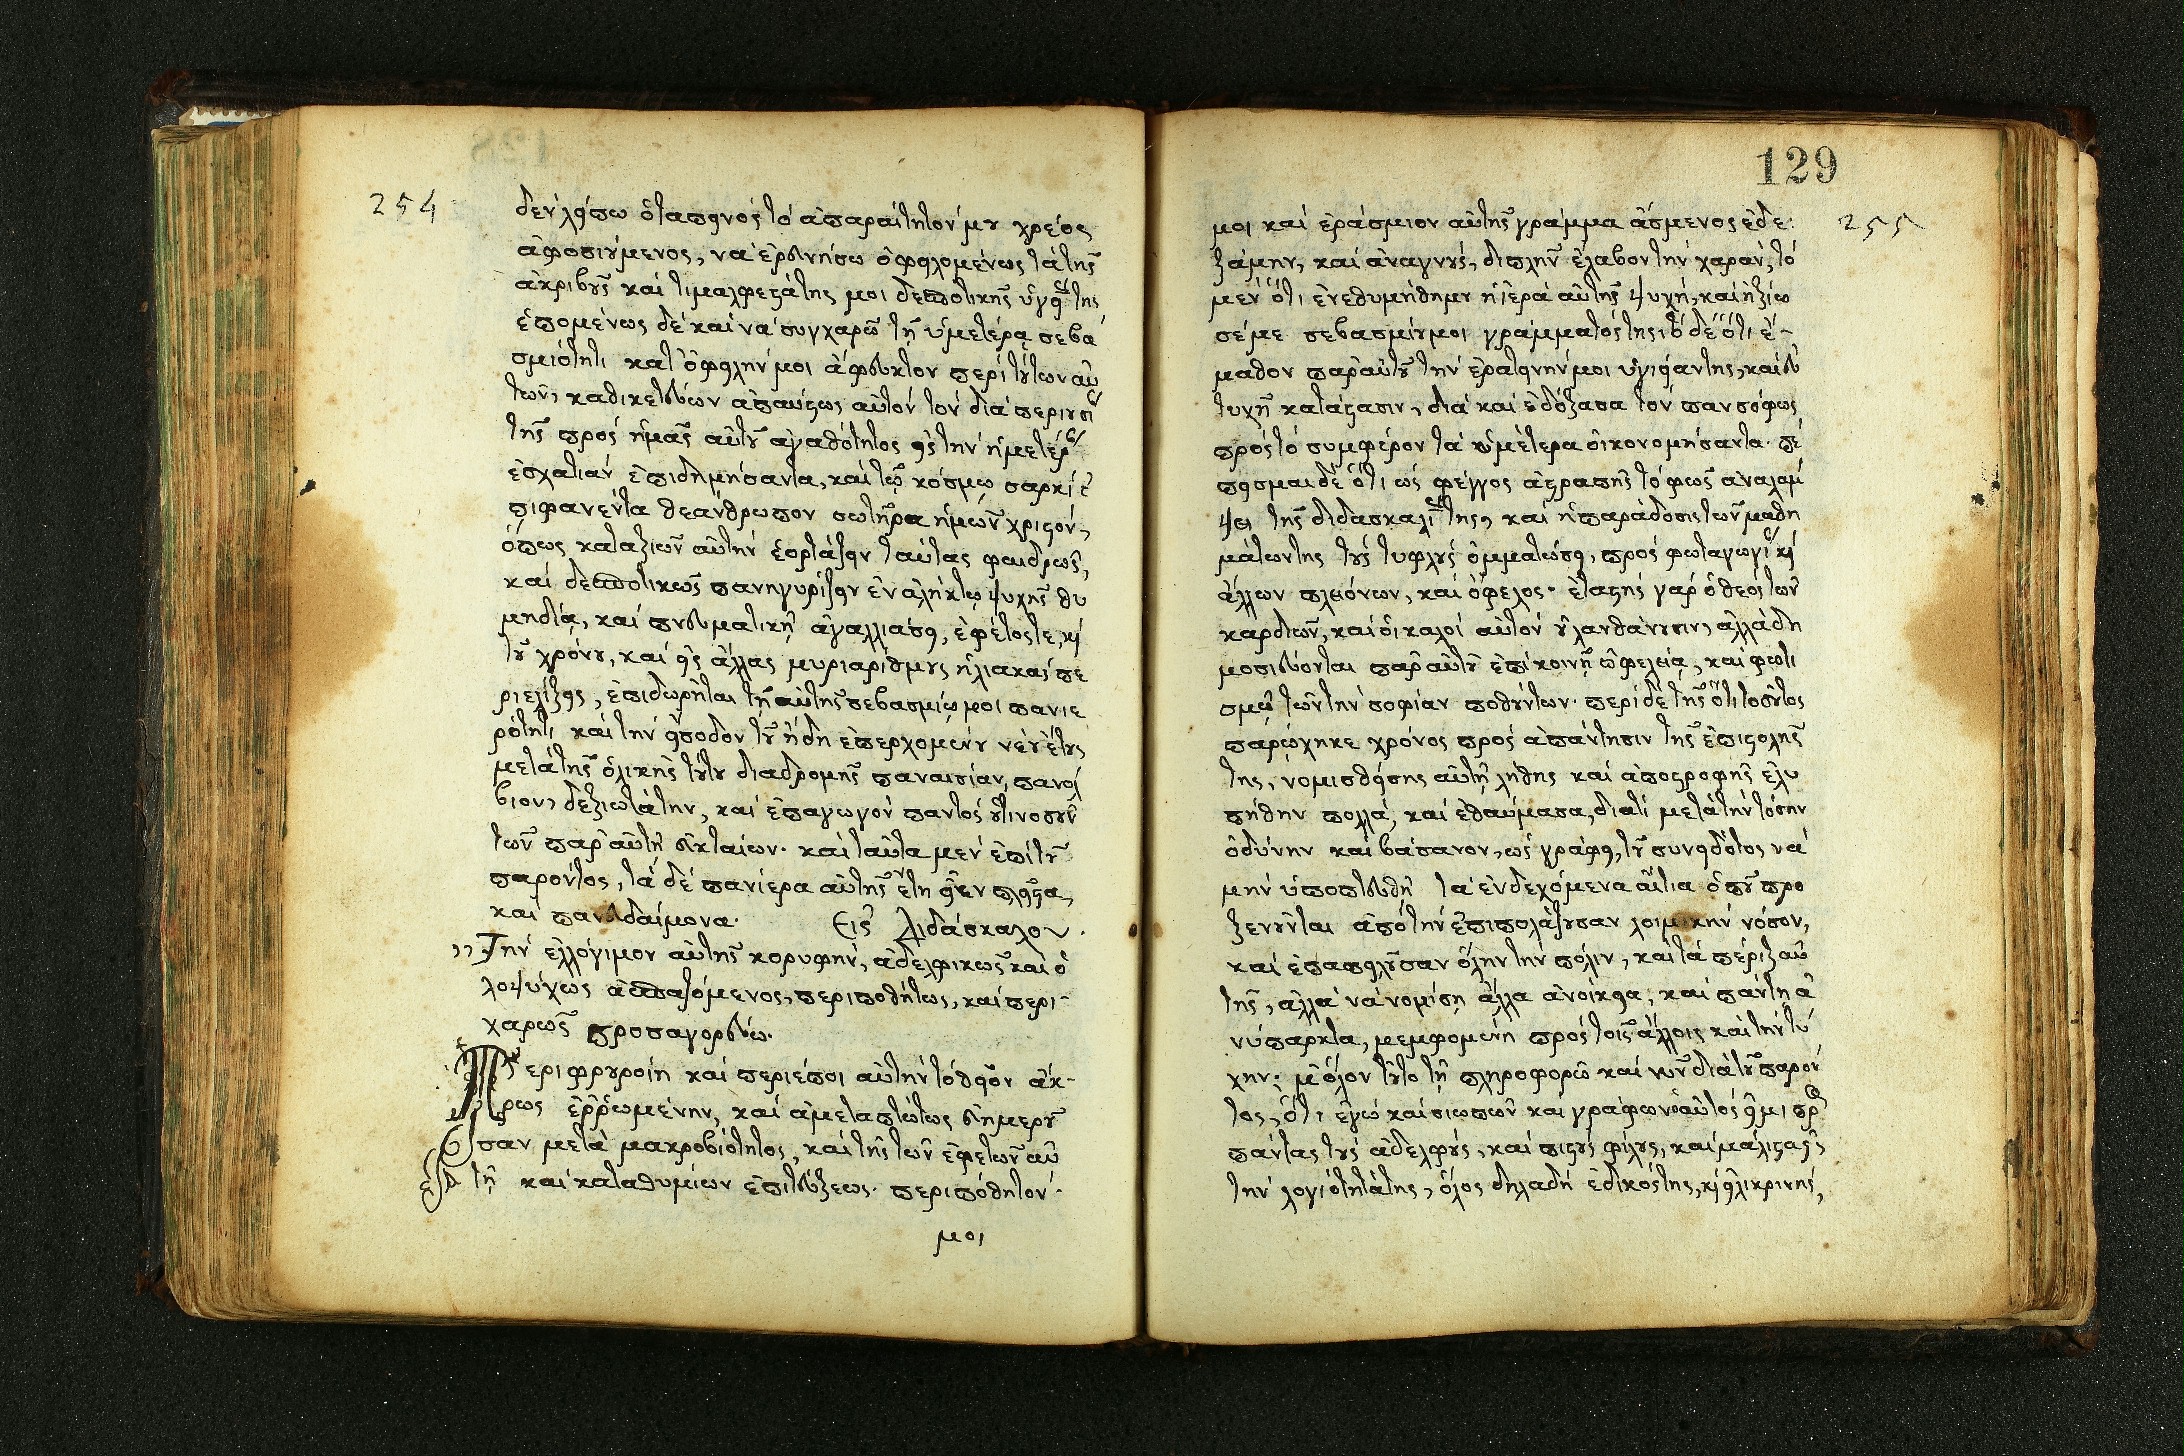 254
δὲν λείπω ὁ ταπεινὸς τὸ ἀπαραίτητόν μου χρέος
ἀφοσιούμενος, νὰ ἐρευνήσω ὀφειλομένως τὰ τῆς
ἀκριβοῦς καὶ τιμαλφεστάτης μοι δεσποτικῆς ὑγείας της
ἑπομένως δὲ καὶ νὰ συγχαρῶ τῇ ὑμετέρᾳ σεβα
σμιότητι κατ' ὀφειλήν μοι ἄφευκτον περὶ τούτων αὐ
τῶν, καθικετεύων ἀπαύστως αὐτὸν τὸν διὰ περιουσίαν
τῆς πρὸς ἡμᾶς αὐτοῦ ἀγαθότητος εἰς τὴν ἡμετέραν
ἐσχατιὰν ἐπιδημήσαντα, καὶ τῷ κόσμῳ σαρκὶ ἐ
πιφανέντα θεάνθρωπον σωτῆρα ἡμῶν χριστόν,
ὅπως καταξιῶν αὐτὴν ἑορτάζειν ταύτας φαιδρῶς,
καὶ δεσποτικῶς πανηγυρίζειν ἐν ἀλήκτῳ ψυχῆς θυ
μηδίᾳ, καὶ πνευματικῇ ἀγαλλιάσει, ἐφέτος τε, κὶ
τοῦ χρόνου, καὶ εἰς ἄλλας μυριαρίθμους ἡλιακὰς πε
ριελίξεις, ἐπιδωρῆται τῇ αὐτῆς σεβασμίῳ μοι πανιε
ρότητι καὶ τὴν εἴσοδον τοῦ ἤδη ἐπερχομένου νέου ἔτους
μετὰ τῆς ὁλικῆς τούτου διαδρομῆς παναισίαν, πανόλ
βιον, δεξιωτάτην, καὶ ἐπαγωγὸν παντὸς οὑτινοσοῦν
τῶν παρ' αὐτῇ εὐκταίων· καὶ ταῦτα μὲν ἐπὶ τοῦ
παρόντος, τὰ δὲ πανίερα αὐτῆς ἔτη εἴησαν πλεῖστα,
καὶ πανευδαίμονα. Εἰς Διδάσκαλον.
,, Τὴν ἐλλόγιμον αὐτῆς κορυφήν, ἀδελφικῶς καὶ ὁ
λοψύχως ἀσπαζόμενος, περιποθήτως, καὶ περι-
χαρῶς προσαγορεύω.
Περιφρουροίη καὶ περιέποι αὐτὴν τὸ θεῖον ἄκ-
ρως ἐῤῥωμένην, καὶ ἀμεταπτώτως εὐημεροῦ
σαν μετὰ μακροβιότητος, καὶ τῆς τῶν ἐφετῶν αὐ
τῇ καὶ καταθυμίων ἐπιτεύξεως. περιπόθητόν.
μοι
129
255
μοι καὶ ἐράσμιον αὐτῆς γράμμα ἀσμένος ἐδε
ξάμην, καὶ ἀναγνούς, διπλῆν ἔλαβον τὴν χαράν, τὸ
μὲν ὅτι ἐνεθυμήθη μου ἡ ἱερὰ αὐτῆς ψυχή, καὶ ἠξίω
σέ με σεβασμίου μοι γράμματός της, τὸ δὲ ὅτι ἔ-
μαθον παρ' αὐτοῦ τὴν ἐρατεινήν μοι ὑγιείαν της, καὶ εὐ
τυχῆ κατάστασιν, διὰ καὶ ἐδόξασα τὸν πανσόφως
πρὸς τὸ συμφέρον τὰ ὑμέτερα οἰκονομήσαντα. πέ
πεισμαι δὲ ὅτι ὡς φέγγος ἀστραπῆς τὸ φῶς ἀναλάμ
ψει τῆς διδασκαλίας της, καὶ ἡ παράδοσις τῶν μαθη
μάτων της τοὺς τυφλοὺς ὀμματώσει, πρὸς φωταγωγίαν κὶ
ἄλλων πλειόνων, καὶ ὄφελος. ἐταστὴς γὰρ ὁ θεὸς τῶν
καρδιῶν, καὶ οἱ καλοὶ αὐτὸν οὐ λανθάνουσιν, ἀλλὰ δη
μοσιεύονται παρ' αὐτοῦ ἐπὶ κοινῇ ὠφελείᾳ, καὶ φωτι
σμῷ τῶν τὴν σοφίαν ποθούντων. περὶ δὲ τῆς ὅτι τοσοῦτος
παρῴχηκε χρόνος πρὸς ἀπάντησιν τῆς ἐπιστολῆς
της, νομισθείσης αὐτῇ λήθης καὶ ἀποστροφῆς ἐλυ
πήθην πολλά, καὶ ἐθαύμασα, διατὶ μετὰ τὴν τόσην
ὀδύνην καὶ βάσανον, ὡς γράφει, τοῦ συνειδότος νὰ
μὴν ὑποπτευθῇ τὰ ἐνδεχόμενα αἴτια ὁποῦ προ
ξενοῦνται ἀπὸ τὴν ἐπιπολάζουσαν λοιμικὴν νόσον,
καὶ ἐπαπειλοῦσαν ὅλην τὴν πόλιν, καὶ τὰ πέριξ αὐ
τῆς, ἀλλὰ νὰ νομίσῃ ἄλλα ἀνοίκεια, καὶ πάντῃ ἀ
νύπαρκτα, μεμφομένη πρὸς τοῖς ἄλλοις καὶ τὴν τύ
χην· μ' ὅλον τοῦτο τῇ πληροφορῶ καὶ νῦν διὰ τοῦ παρόν
τος, ὅτι ἐγὼ καὶ σιωπῶν καὶ γράφων ὁ αὐτὸς εἶμι πρὸς
πάντας τοὺς ἀδελφούς, καὶ πιστοὺς φίλους, καὶ μάλιστα εἰς
τὴν λογιότητά της, ὅλος δηλαδὴ ἐδικός της, κὶ εἰλικρινής,